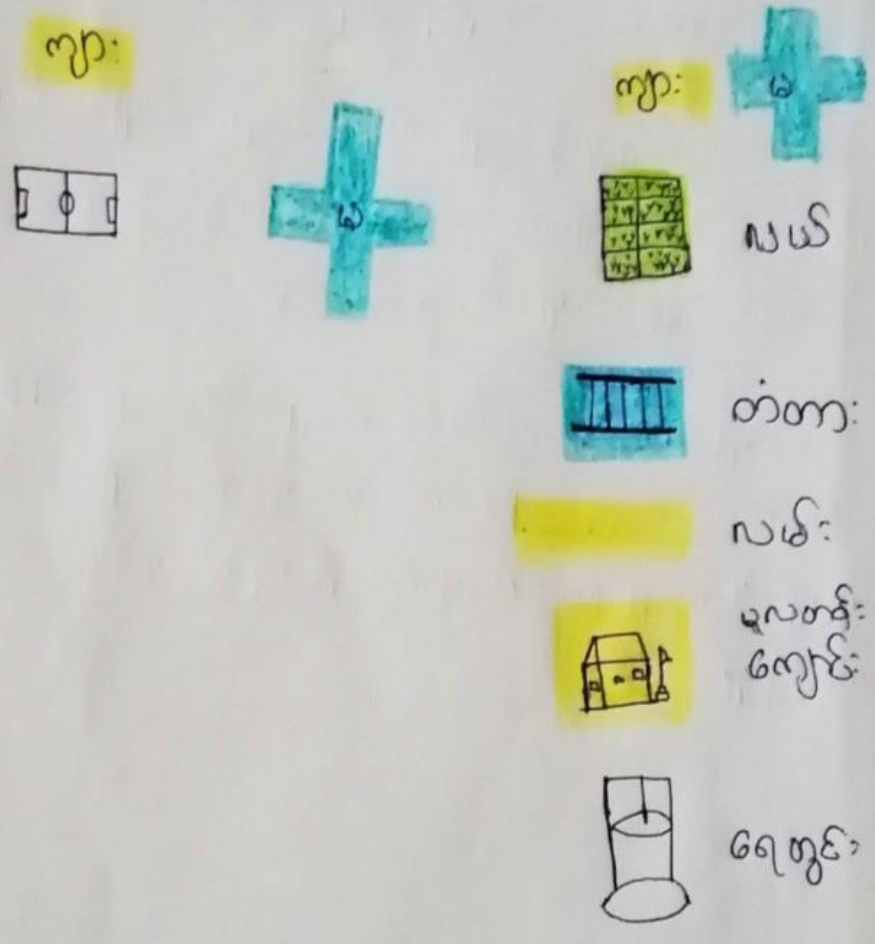 ကျား
ကျား
မ
မ
လယ်
တံတား
လမ်း
မူလတန်း
ကျောင်း
ရေတွင်း